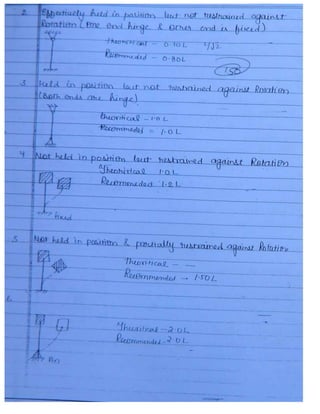 2. Effectively held in position but not restrained against
Rotation (one end hinge & other end is fixed)
Theoretical - 0.70L 1/√2
Recommeded - 0.80L
3 held in position but not restrained against Rotation
(Both ends are hinge)
theoritical - 1.0 L
Recommeded = 1.0 L
4 Not held in position but restrained against Rotation
Theoritical 1.0 L
Recommeded 1.2 L
fixed
5 Not held in position & partially restrained against Rotation
Theoritical - —
Recommended → 1.50L
6.
Theoritical - 2.0 L
Recommended - 2.0 L
Pin